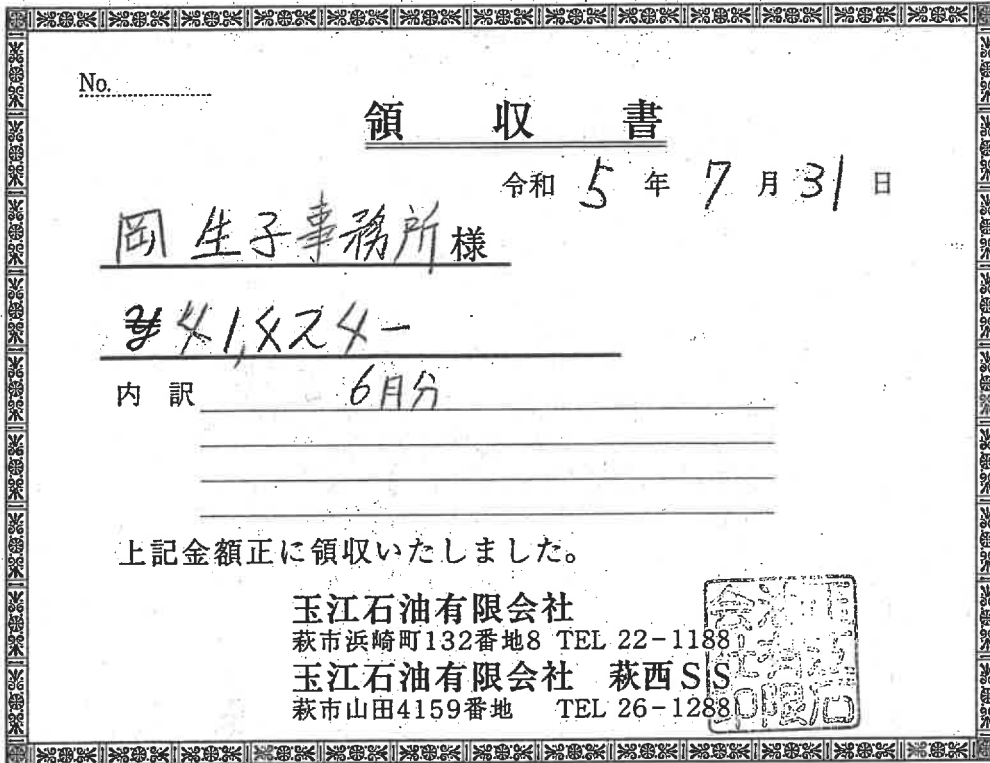 No.
領収書
令和 5 年 7 月 31 日
岡 生子事務所様
¥41,424-
内訳 6月分
上記金額正に領収いたしました。
玉江石油有限会社
萩市浜崎町132番地8 TEL 22-1188
玉江石油有限会社 萩西SS
萩市山田4159番地 TEL 26-1288